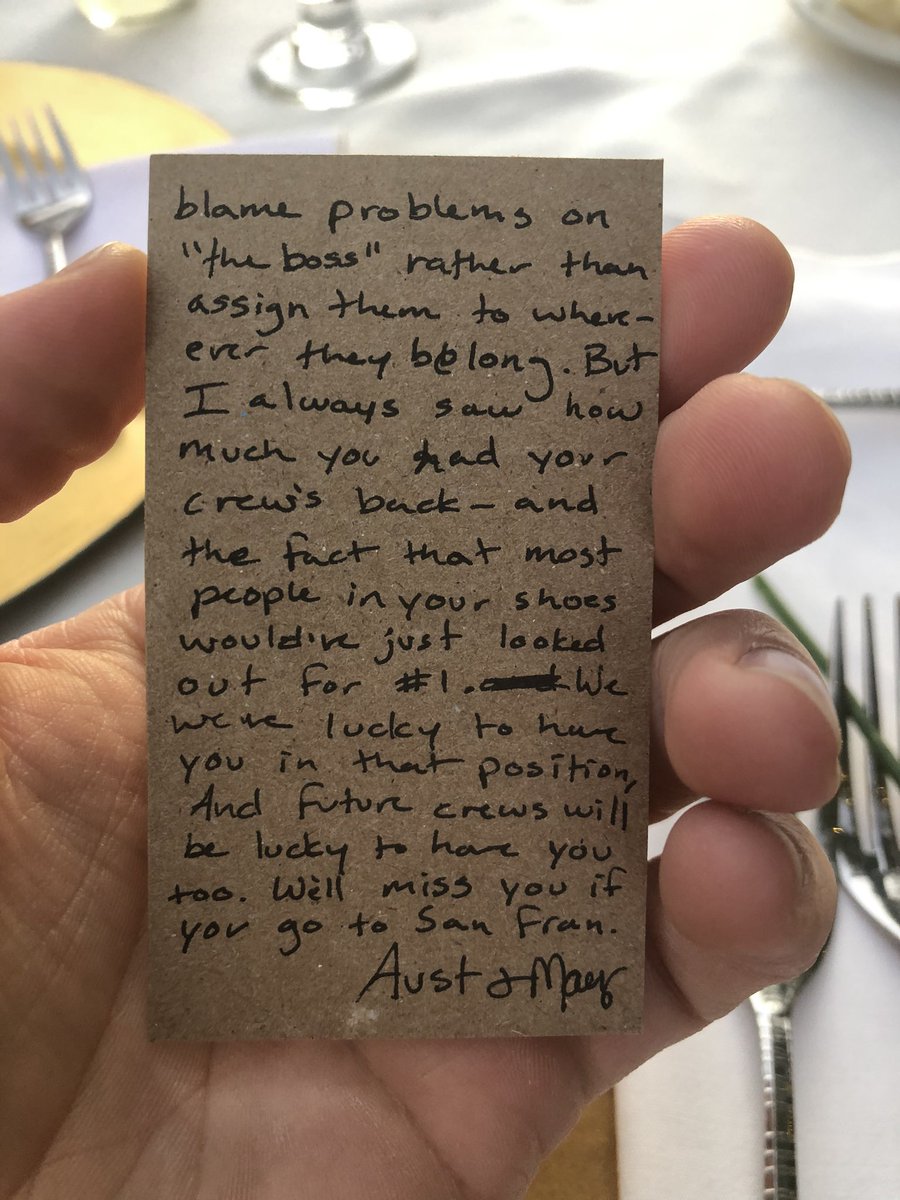 blame problems on
"the boss" rather than
assign them to where-
ever they belong. But
I always saw how
much you had your
crew's back - and
the fact that most
people in your shoes
would've just looked
out for #1. We
were lucky to have
you in that position,
And future crews will
be lucky to have you
too. We'll miss you if
you go to San Fran.
Aust &